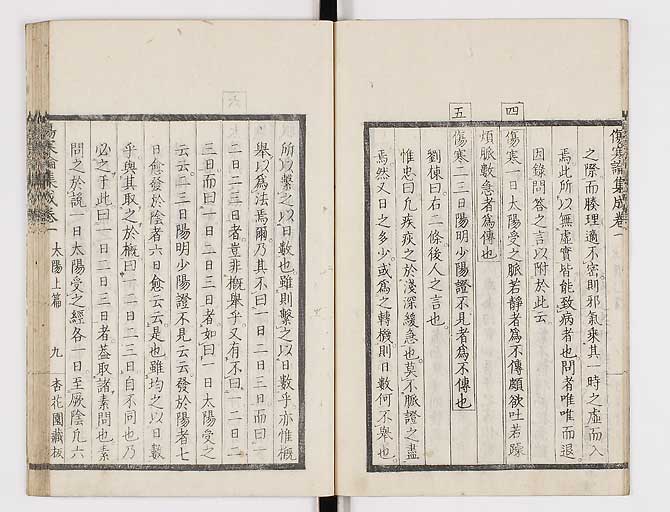 傷寒論集成卷一
之際而腠理適不密則邪氣乘其一時之虛而入
焉此所以無虛實皆能致病者也問者唯唯而退
因錄問答之言以附於此云
四
傷寒一日太陽受之脈若靜者爲不傳頗欲吐若躁
煩脈數急者爲傳也
五
傷寒二三日陽明少陽證不見者爲不傳也
劉棟曰右二條後人之言也
惟忠曰凡疾疢之於淺深緩急也莫不脈證之盡
焉然又日之多少或爲之轉機則日數何不舉也
六
所以繫之以日數也雖則繫之以日數乎亦惟概
舉以爲法焉爾乃其不曰一日二日三日而曰一
二日二三日者豈非概舉乎又有不曰一二日二
三日而曰一日二日三日者如曰一日太陽受之
云云二三日陽明少陽證不見云云發於陽者七
日愈發於陰者六日愈云云是也雖均之以日數
乎與其取之於概曰一二日二三日自不同也乃
必之于此曰一日二日三日者蓋取諸素問也素
問之於說一日太陽受之經各一日至厥陰凡六
傷寒論集成卷一 太陽上篇 九 杏花園藏板